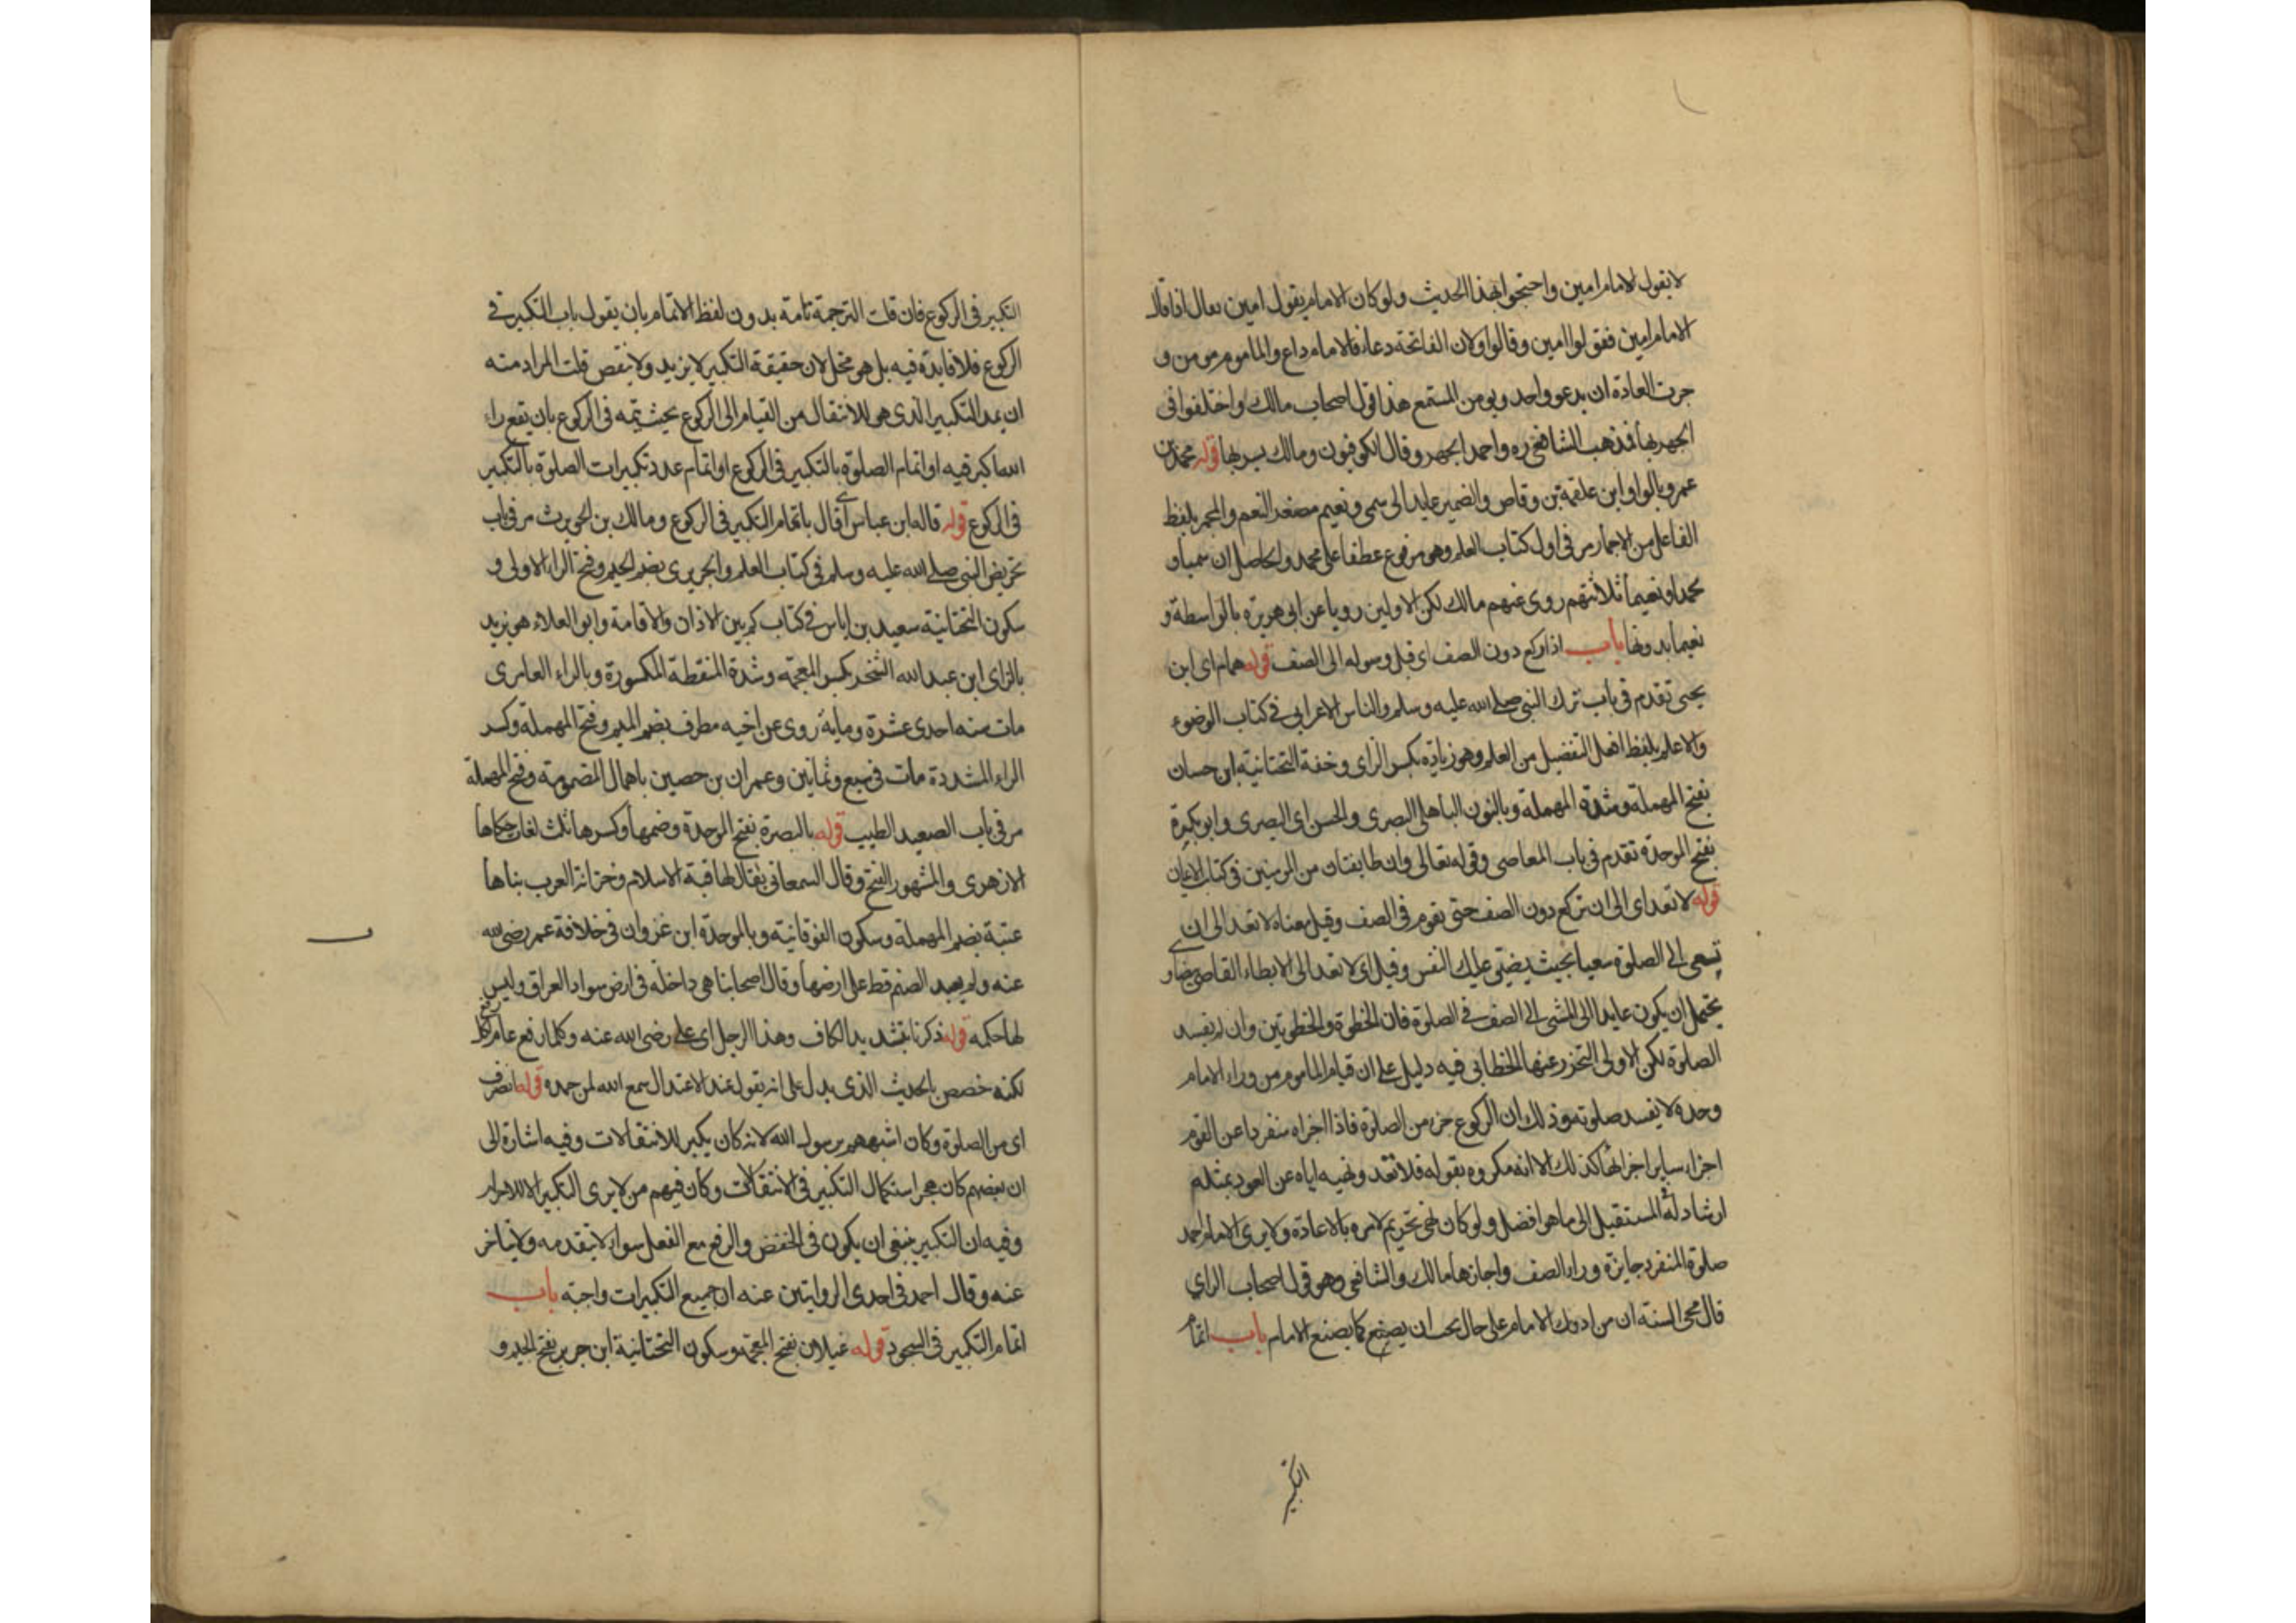 لا يقول الامام امين واحتجوا بهذا الحديث ولو كان الامام يقول امين لقال اذا قال
الامام امين فقولوا امين وقالوا ولان الفاتحة دعاء فالامام داع والماموم مومن و
جرت العادة ان يدعو واحد ويومن المستمع هذا قول اصحاب مالك واختلفوا في
الجهر بها فذهب الشافعي ره واحمد الجهر وقال الكوفيون ومالك يسر بها قوله محمد بن
عمرو بالواو ابن علقمة بن وقاص والضمير عايد الى سمى ونعيم مصغر النعم والمجمر بلفظ
الفاعل من الاجمار مر في اول كتاب العلم وهو مرفوع عطفا على محمد والحاصل ان سميا و
محمدا ونعيما ثلاثتهم روى عنهم مالك لكن الاولين رويا عن ابى هريرة بالواسطة و
نعيما بدونها باب اذا ركع دون الصف اى قبل وصوله الى الصف قوله همام اى ابن
يحيى تقدم في باب ترك النبي صلى الله عليه وسلم والناس الاعرابي في كتاب الوضوء
والاعلم بلفظ افعل التفضيل من العلم وهو زياده بكسر الزاى وخفة التحتانية ابن حسان
بفتح المهملة وشدة المهملة وبالنون الباهلى البصرى والحسن اى البصرى وابو بكرة
بفتح الموحدة تقدم في باب المعاصى وقوله تعالى وان طايفتان من المومنين في كتاب الايمان
قوله لا تعد اى الى ان تركع دون الصف حتى تقوم في الصف وقيل معناه لا تعد الى ان
تسعى الى الصلوة سعيا بحيث يضيق عليك النفس وقيل اى لا تعد الى الابطاء القاضى بيضاو
يحتمل ان يكون عايدا الى المشى الى الصف في الصلوة فان الخطوة والخطوتين وان لم يفسد
الصلوة لكن الاولى التحرز عنها الخطابى فيه دليل على ان قيام الماموم من وراء الامام
وحده لا يفسد صلوته وذلك ان الركوع جزء من الصلوة فاذا اجزاه منفردا عن القوم
اجزاء ساير اجزائها كذلك الا انه مكروه بقوله فلا تعد ونهيه اياه عن العود بمثله
ارشاد له في المستقبل الى ما هو افضل ولو كان نهى تحريم لامره بالاعادة ولا يرى الامام احمد
صلوة المنفرد جايزة وراء الصف واجازها مالك والشافعي وهو قول اصحاب الراي
قال محى السنة ان من ادرك الامام على حال يجب ان يصنع كما يصنع الامام باب اتمام
التكبير
التكبير في الركوع فان قلت الترجمة تامة بدون لفظ الاتمام بان يقول باب التكبير في
الركوع فلا فايدة فيه بل هو مخل لان حقيقة التكبير لا يزيد ولا ينقص قلت المراد منه
ان يمد التكبير الذى هو للانتقال من القيام الى الركوع بحيث يتمه في الركوع بان يقع راء
الله اكبر فيه او اتمام الصلوة بالتكبير في الركوع او اتمام عدد تكبيرات الصلوة بالتكبير
في الركوع قوله قاله ابن عباس اى قال باتمام التكبير في الركوع ومالك بن الحويرث مر في باب
تحريض النبي صلى الله عليه وسلم في كتاب العلم والجريرى بضم الجيم وفتح الراء الاولى و
سكون التحتانية سعيد بن اياس في كتاب كم بين الاذان والاقامة وابو العلاء هو يزيد
بالزاى ابن عبد الله الشخير بكسر المعجمة وشدة المنقطة المكسورة وبالراء العامرى
مات سنه احدى عشرة ومايه روى عن اخيه مطرف بضم الميم وفتح المهملة وكسر
الراء المشددة مات في سبع وثمانين وعمران بن حصين باهمال المضمومة وفتح المهملة
مر في باب الصعيد الطيب قوله بالبصرة بفتح الموحدة وضمها وكسرها ثلث لغات حكاها
الازهرى والمشهور الفتح وقال السمعانى يقال لها قبة الاسلام وخزانة العرب بناها
عتبة بضم المهملة وسكون الفوقانية وبالموحدة ابن غزوان في خلافة عمر رضى الله
عنه ولم يعبد الصنم قط على ارضها وقال اصحابنا هى داخلة في ارض سواد العراق وليس
لها حكمه قوله ذكرنا بتشديد الكاف وهذا الرجل اى على رضى الله عنه وكلما رفع عام
لكنه خصص بالحديث الذى يدل على انه يقول عند الاعتدال سمع الله لمن حمده قوله انصرف
اى من الصلوة وكان اشبههم برسول الله لانه كان يكبر للانتقالات وفيه اشارة الى
ان بعضهم كان هجر استكمال التكبير في الانتقالات وكان فيهم من لا يرى التكبير الا للاحرام
وفيه ان التكبير ينبغى ان يكون في الخفض والرفع مع الفعل سواء لا يتقدمه ولا يتاخر
عنه وقال احمد في احدى الروايتين عنه ان جميع التكبيرات واجبة باب
اتمام التكبير في السجود قوله غيلان بفتح المعجمه وسكون التحتانية ابن جرير بفتح الجيم و